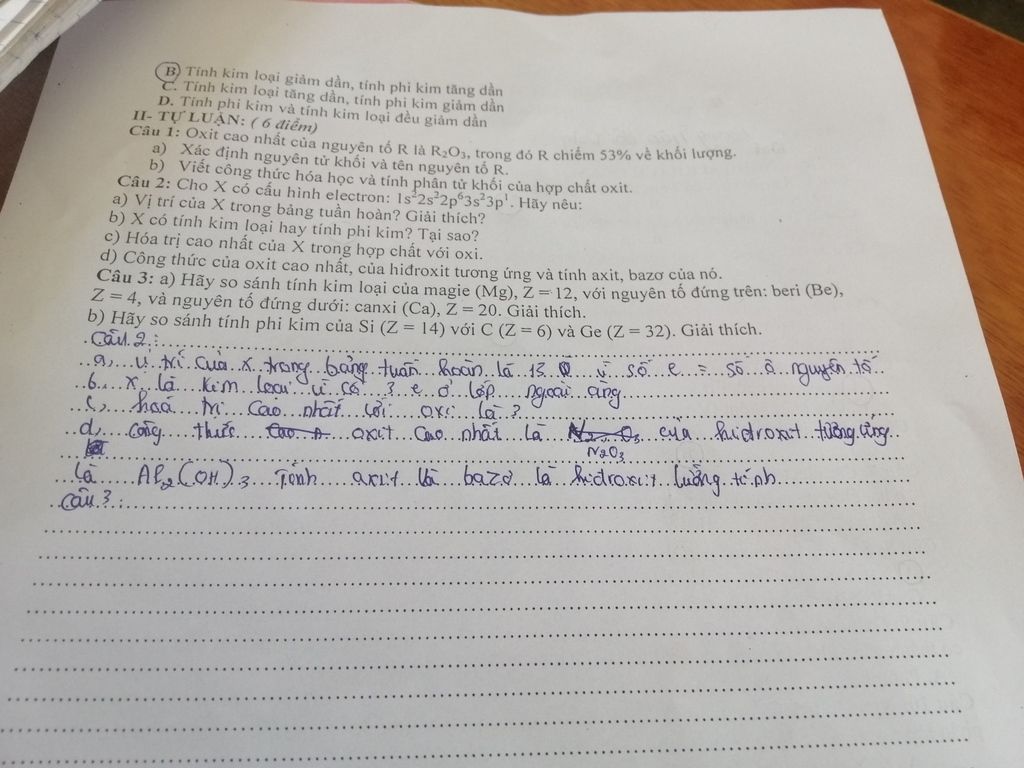 B) Tính kim loại giảm dần, tính phi kim tăng dần
C. Tính kim loại tăng dần, tính phi kim giảm dần
D. Tính phi kim và tính kim loại đều giảm dần
II- TỰ LUẬN: ( 6 điểm)
Câu 1: Oxit cao nhất của nguyên tố R là R₂O₃, trong đó R chiếm 53% về khối lượng.
a) Xác định nguyên tử khối và tên nguyên tố R.
b) Viết công thức hóa học và tính phân tử khối của hợp chất oxit.
Câu 2: Cho X có cấu hình electron: 1s²2s²2p⁶3s²3p¹. Hãy nêu:
a) Vị trí của X trong bảng tuần hoàn? Giải thích?
b) X có tính kim loại hay tính phi kim? Tại sao?
c) Hóa trị cao nhất của X trong hợp chất với oxi.
d) Công thức của oxit cao nhất, của hiđroxit tương ứng và tính axit, bazơ của nó.
Câu 3: a) Hãy so sánh tính kim loại của magie (Mg), Z = 12, với nguyên tố đứng trên: beri (Be),
Z = 4, và nguyên tố đứng dưới: canxi (Ca), Z = 20. Giải thích.
b) Hãy so sánh tính phi kim của Si (Z = 14) với C (Z = 6) và Ge (Z = 32). Giải thích.
Câu 2:
a, vị trí của X trong bảng tuần hoàn là 13 vì số e = số ô nguyên tố
b, X là kim loại vì có 3 e ở lớp ngoài cùng
c, hoá trị cao nhất với oxi là 3
d, công thức oxit cao nhất là N₂O₃ của hidroxit tương ứng
là Al₂(OH)₃ Tính axit là bazơ là hidroxit lưỡng tính
Câu 3: